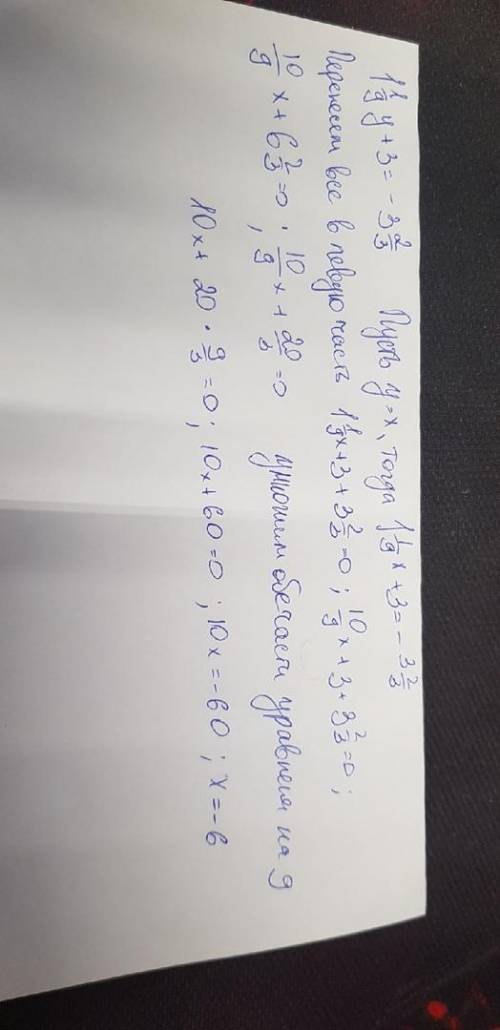 1 1/9 y + 3 = - 3 2/3 Пусть y = x, Тогда 1 1/9 x + 3 = - 3 2/3
Перенесем все в левую часть 1 1/9 x + 3 + 3 2/3 = 0 ; 10/9 x + 3 + 3 2/3 = 0 ;
10/9 x + 6 2/3 = 0 ; 10/9 x + 20/3 = 0 умножим обе части уравнения на 9
10x + 20 · 9/3 = 0 ; 10x + 60 = 0 ; 10x = - 60 ; x = - 6